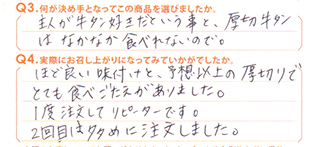 Q3.何が決め手となってこの商品を選びましたか。
主人が牛タン好きだという事と、厚切牛タン
はなかなか食べれないので。
Q4.実際にお召し上がりになってみていかがでしたか。
ほど良い味付けと、予想以上の厚切りで
とても食べごたえがありました。
1度注文してリピーターです。
2回目は多めに注文しました。